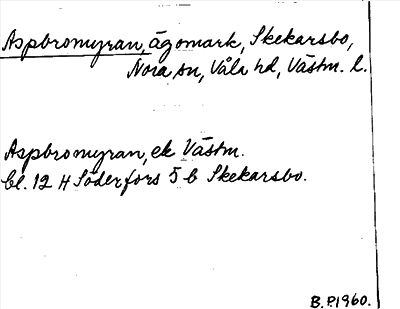 Aspbromyran, ägomark, Skekarsbo,
Nora sn, Våla hd, Västm. l.
Aspbromyran, ek Västm.
bl. 12 H Söderfors 5 b Skekarsbo.
B.P. 1960.